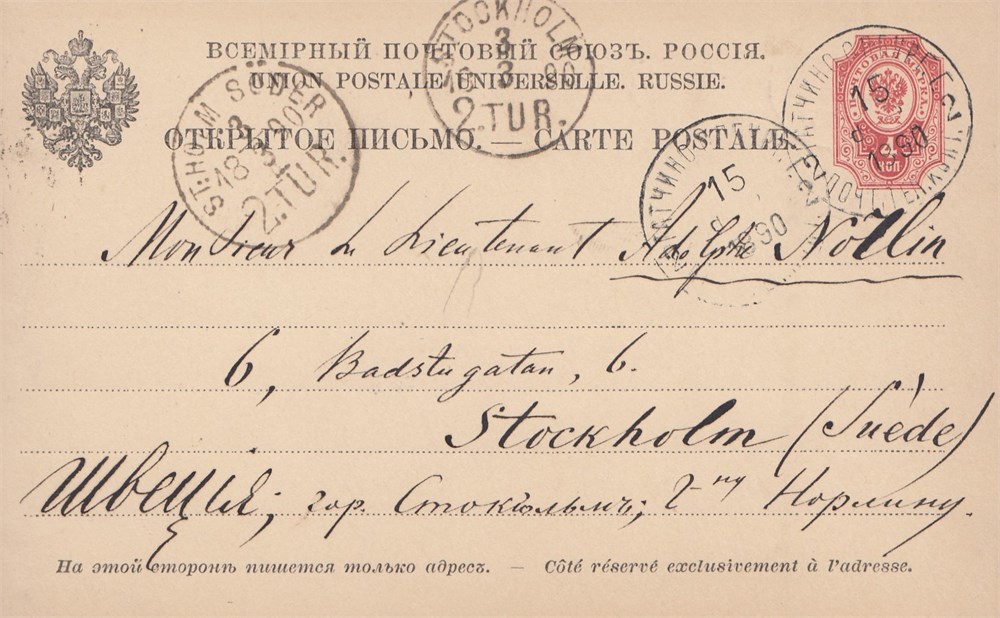 ВСЕМІРНЫЙ ПОЧТОВЫЙ СОЮЗЪ. РОССІЯ.
UNION POSTALE UNIVERSELLE. RUSSIE.
ОТКРЫТОЕ ПИСЬМО. — CARTE POSTALE.
STOCKHOLM
3
3
2.TUR.
ST:HOLM SÖDER
3
3
18 90
2.TUR.
15
1890
15
1890
ПОЧТОВАЯ МАРКА
4
КОП.
Monsieur Le Lieutenant Adolphe Nollin
6, Badstugatan, 6.
Stockholm (Suède)
Швеція; гор. Стокгольмъ; Г-ну Норлину.
На этой сторонѣ пишется только адресъ. — Côté réservé exclusivement à l'adresse.